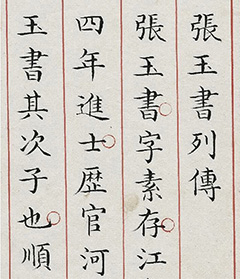 張玉書列傳
張玉書字素存江
四年進士歷官河
玉書其次子也順